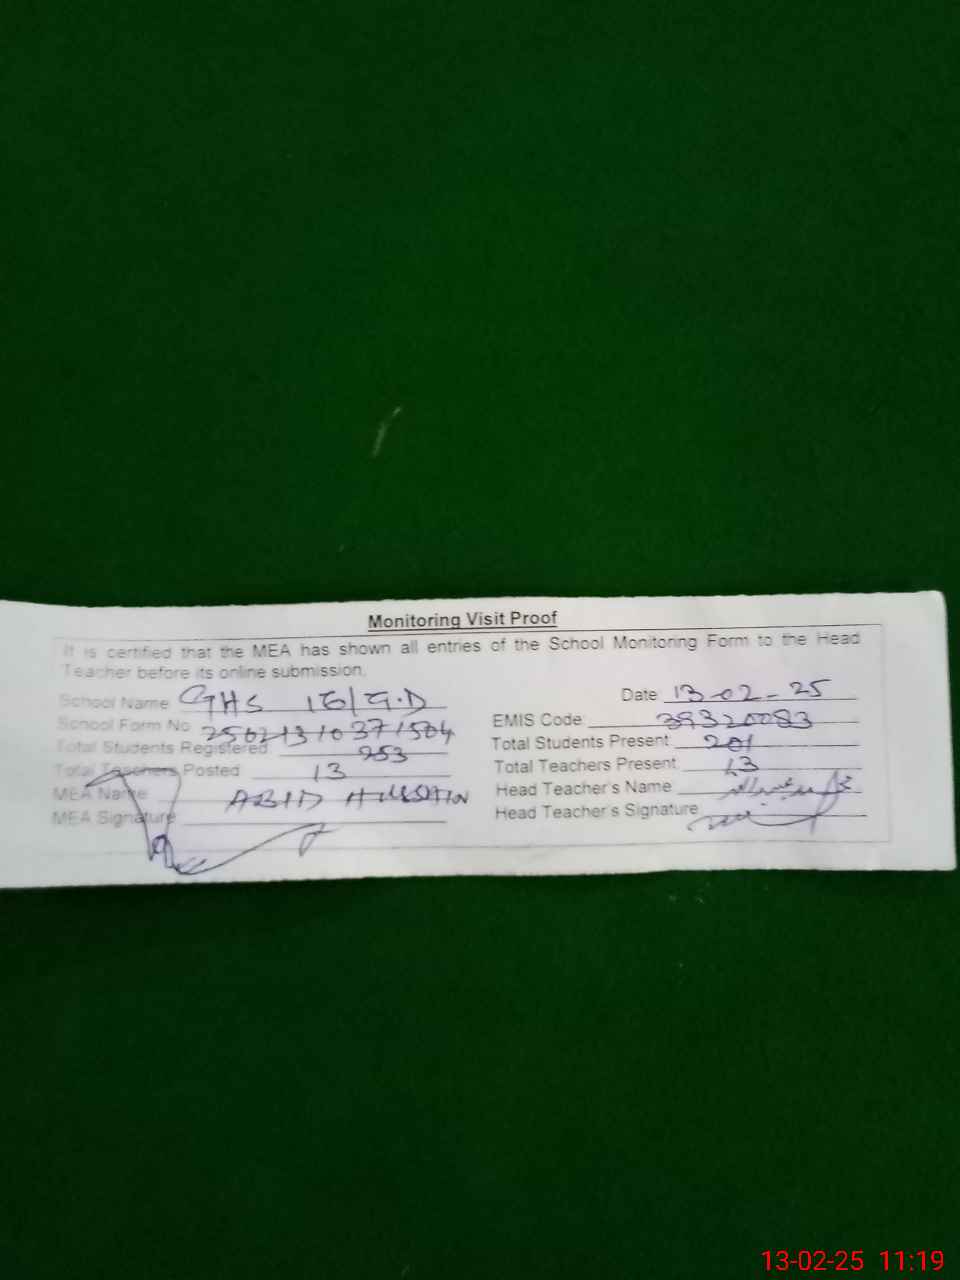 Monitoring Visit Proof
It is certified that the MEA has shown all entries of the School Monitoring Form to the Head
Teacher before its online submission.
School Name GHS 16/G.D Date 13-02-25
School Form No 25021310371504 EMIS Code 39320083
Total Students Registered 253 Total Students Present 201
Total Teachers Posted 13 Total Teachers Present 13
MEA Name ABID HUSSAIN Head Teacher's Name
MEA Signature Head Teacher's Signature
13-02-25 11:19